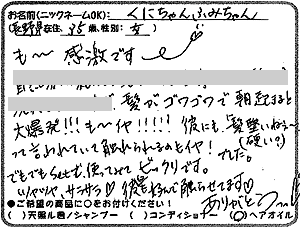 お名前(ニックネームOK): くにちゃんふみちゃん
(長野県在住、35歳、性別: 女)
も〜感激です
髪がゴワゴワで朝起きると
大爆発!!!も〜イヤ!!!!! 彼にも"髪堅いねぇ〜
(硬い?)
って言われいて触れられるのもイヤ! でした。
でもでも 使ってて ビックリです。
ツヤツヤ、サラサラ♡ 彼 触らせてます♡
●ご希望の商品に○をお付けください! ありがとう
( )天陽ル壱ノシャンプー ( )コンディショナー (○)ヘアオイル